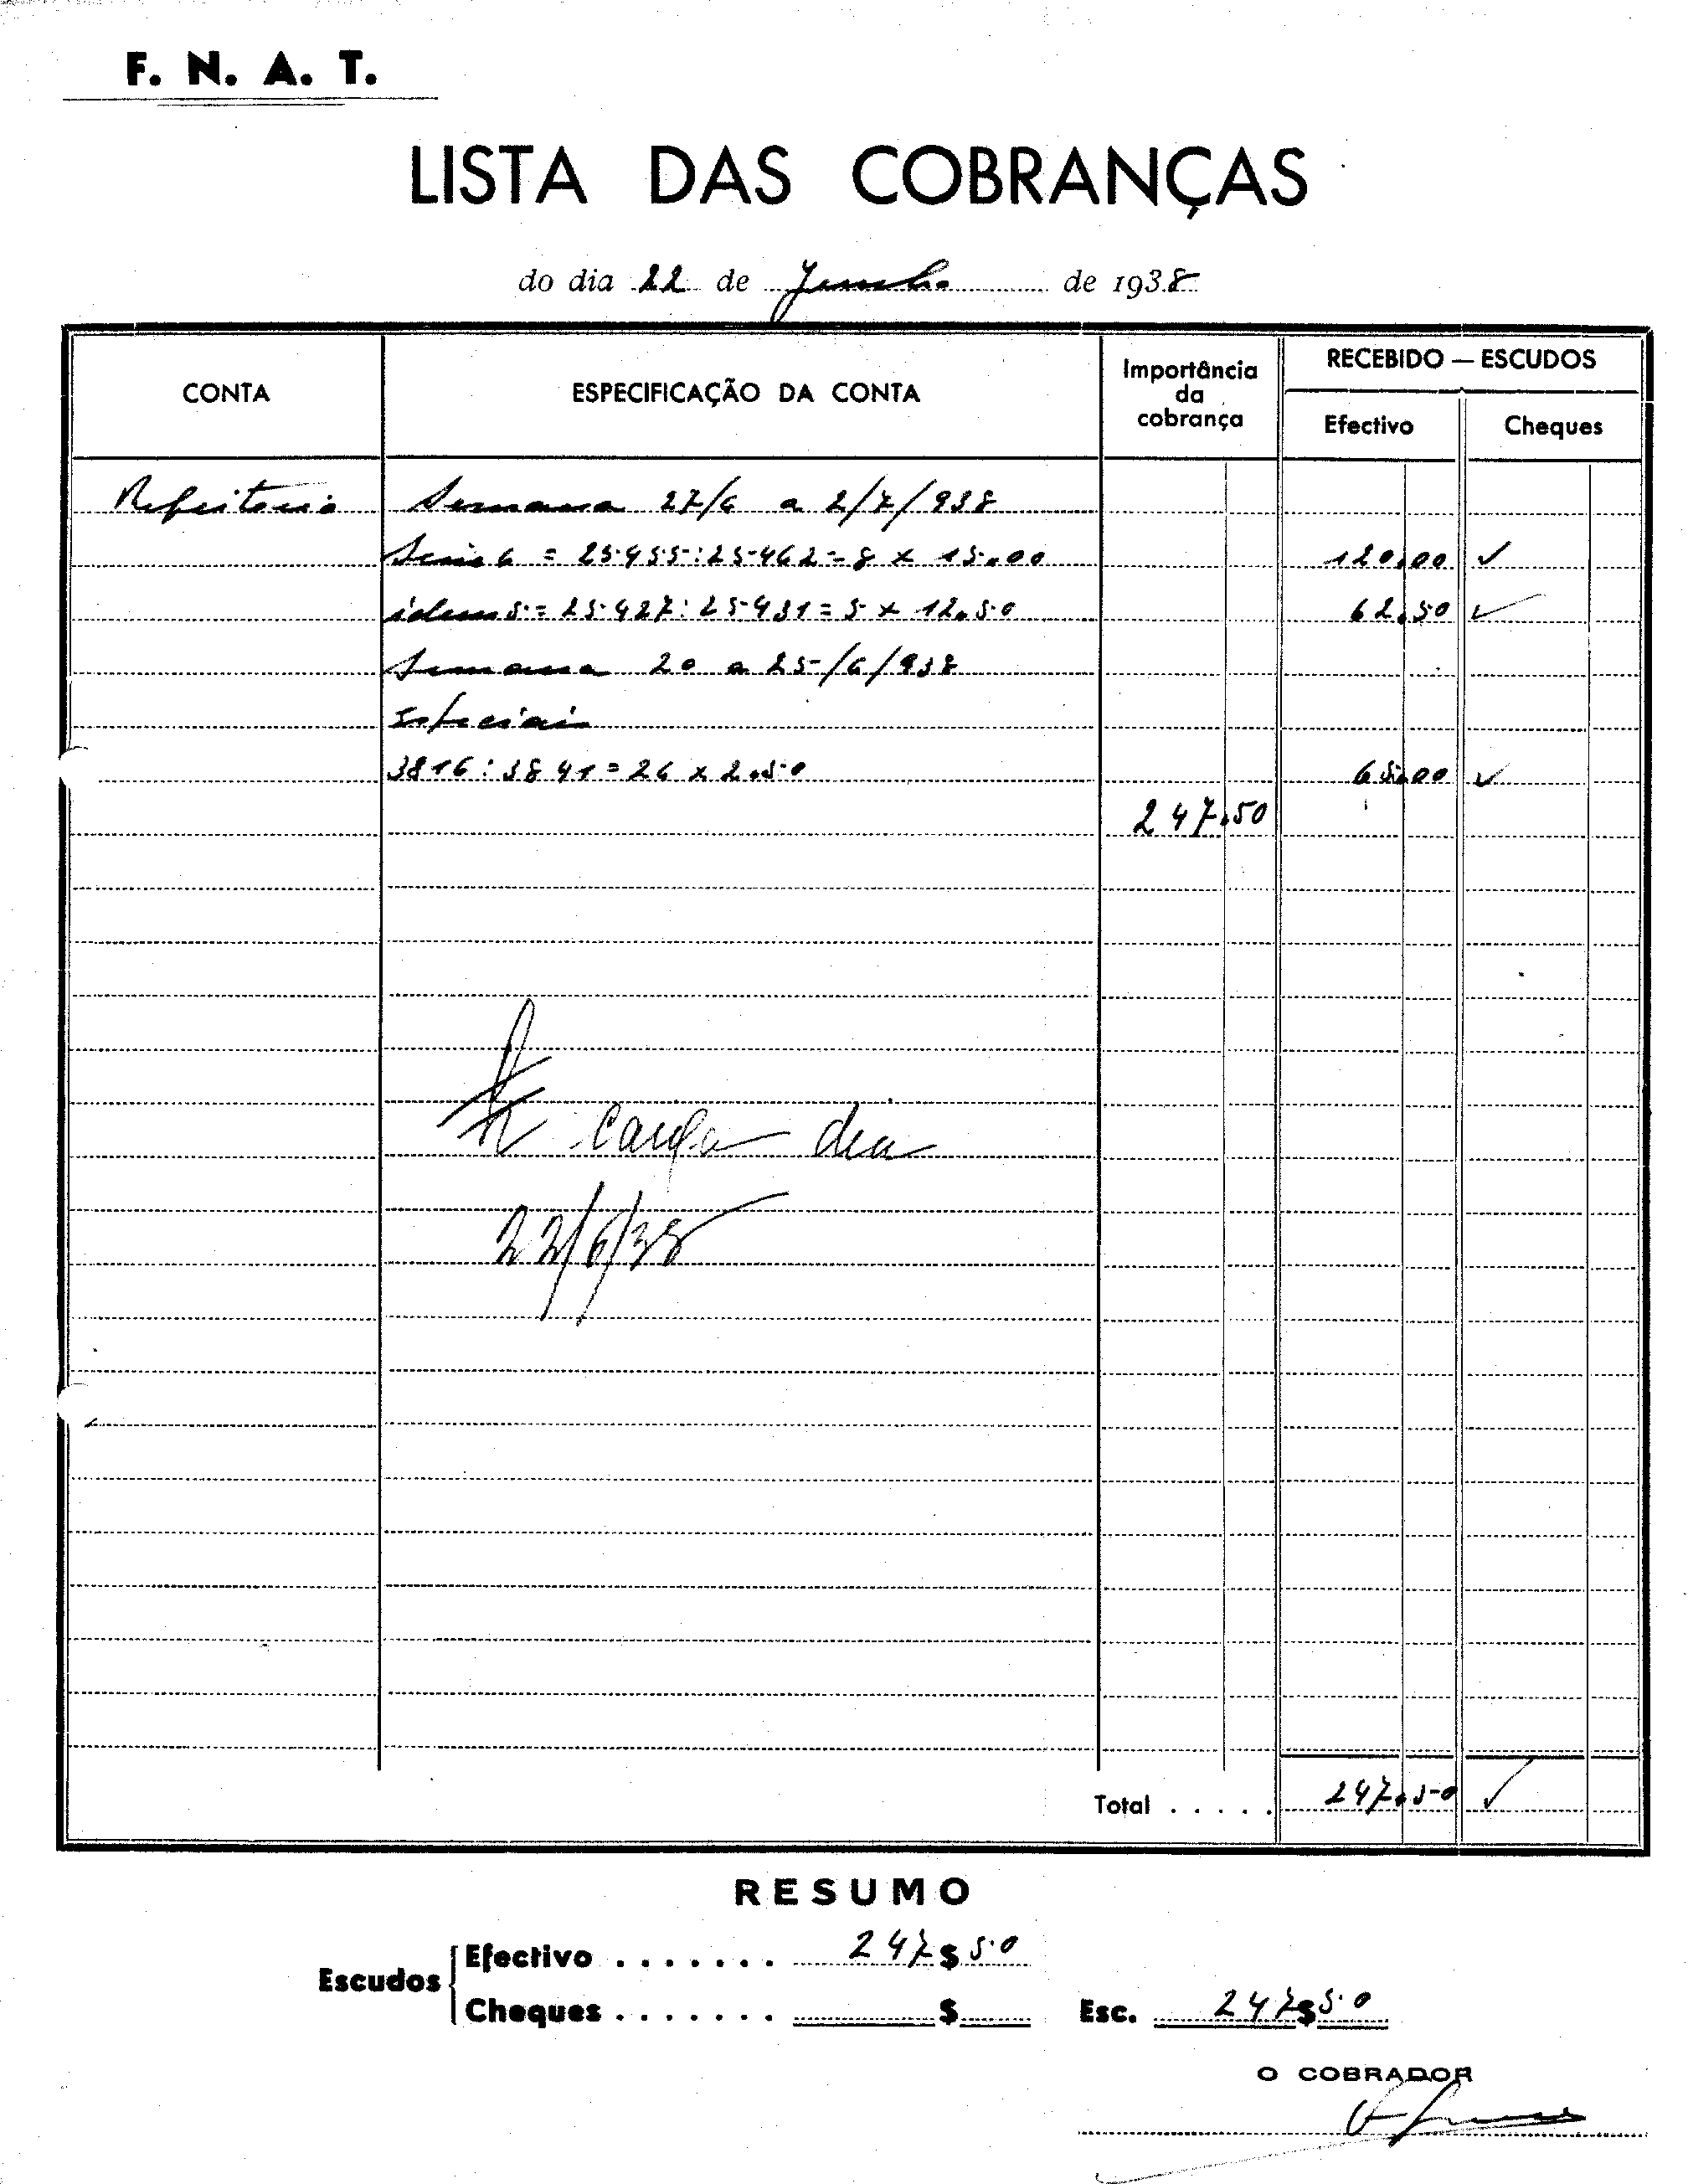 F. N. A. T.
LISTA DAS COBRANÇAS
do dia 22 de Junho de 1938
CONTA
ESPECIFICAÇÃO DA CONTA
Importância
da
cobrança
RECEBIDO — ESCUDOS
Efectivo
Cheques
Refeitorio Semana 27/6 a 2/7/938
Serie 6 = 25.455:25.462 = 8 x 15.00 120.00 ✓
idem 5 = 25.427:25.431 = 5 x 12.50 62.50 ✓
Semana 20 a 25/6/938
Especiais
3816:3841 = 26 x 2.50 65.00 ✓
247.50
carga dia
22/6/38
Total ..... 247.50 ✓
RESUMO
Escudos
Efectivo ....... 247$50
Cheques ....... $
Esc. 247$50
O COBRADOR